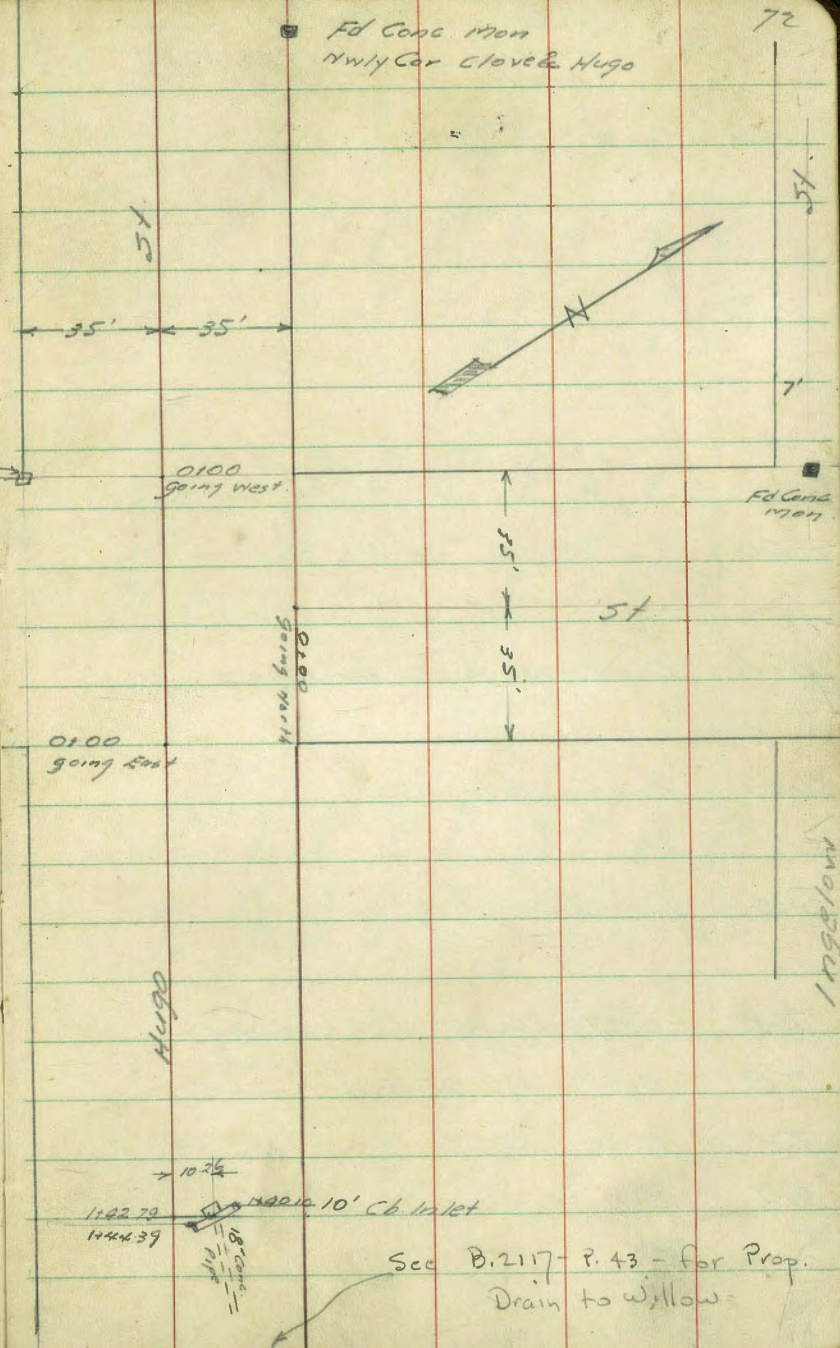 72
Fd Conc Mon
Nwly Cor Clove & Hugo
St.
St.
35' 35'
N
7'
0+00
going West
Fd Conc
Mon
35'
St
35'
0+00
going North
0+00
going East
Ingelow
Hugo
10.26
1+40.10 10' Cb Inlet
1+42.79
1+44.39
18" Conc
Pipe
See B.2117 - P. 43 - for Prop.
Drain to Willow